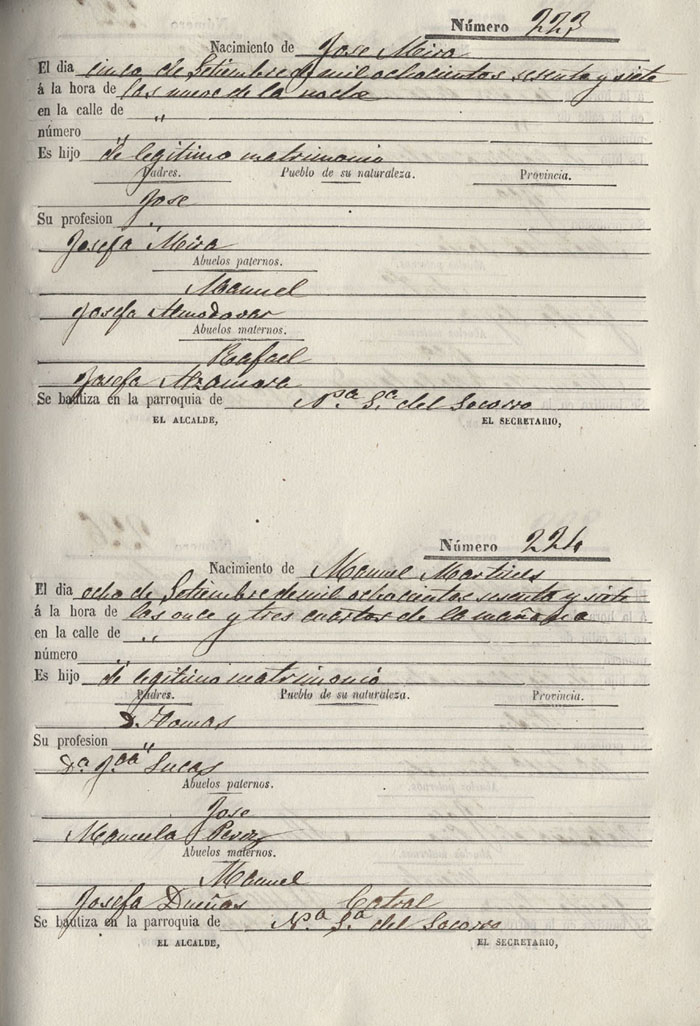 Número 223
Nacimiento de Jose Mira
El dia cinco de Setiembre de mil ochocientos sesenta y siete
á la hora de las nueve de la noche
en la calle de "
número "
Es hijo de legitimo matrimonio
Padres. Pueblo de su naturaleza. Provincia.
Jose
Su profesion "
Josefa Mira
Abuelos paternos.
Manuel
Josefa Almodovar
Abuelos maternos.
Rafael
Josefa Alzamora
Se bautiza en la parroquia de Nª Sª del Socorro
EL ALCALDE, EL SECRETARIO,
Número 224
Nacimiento de Manuel Martines
El dia ocho de Setiembre de mil ochocientos sesenta y siete
á la hora de las once y tres cuartos de la mañana
en la calle de "
número
Es hijo de legitimo matrimonio
Padres. Pueblo de su naturaleza. Provincia.
D. Tomas
Su profesion "
Dª Jªª Lucas
Abuelos paternos.
Jose
Manuela Perez
Abuelos maternos.
Manuel
Josefa Dueñas Catral
Se bautiza en la parroquia de Nª Sª del Socorro
EL ALCALDE, EL SECRETARIO,